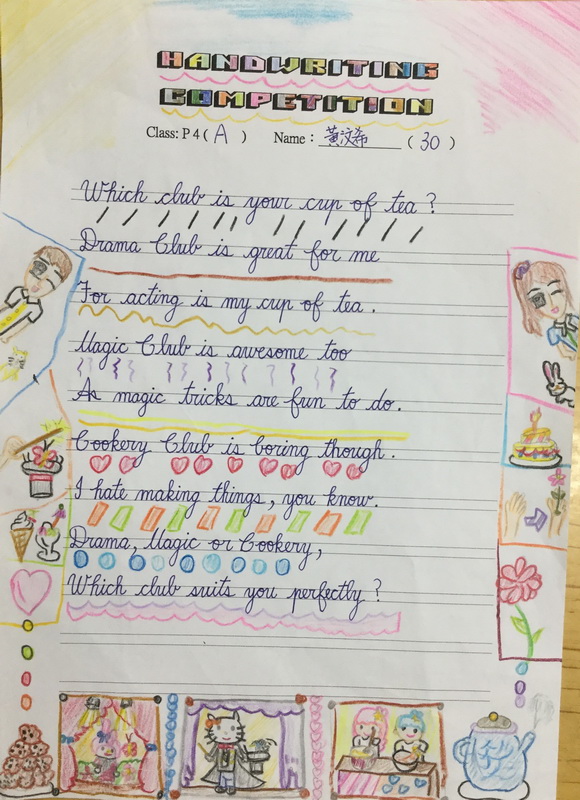 HANDWRITING
COMPETITION
Class: P 4 ( A ) Name : 黃汶希 ( 30 )
Which club is your cup of tea ?
Drama Club is great for me
For acting is my cup of tea .
Magic Club is awesome too
As magic tricks are fun to do .
Cookery Club is boring though .
I hate making things, you know.
Drama, Magic or Cookery,
Which club suits you perfectly ?